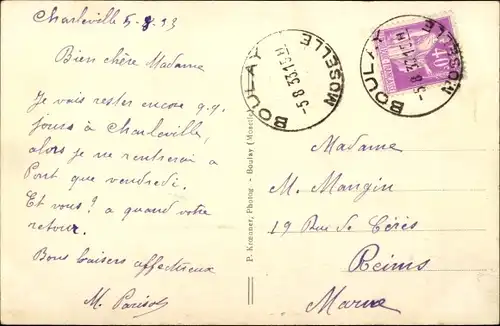 Charleville 5.8.33
Bien chère Madame
Je vais rester encore q.q.
jours à Charleville,
alors je ne rentrerai à
Pont que vendredi.
Et vous? a quand votre
retour.
Bons baisers affectueux
M. Parisot
P. Krœnner, Photog - Boulay (Moselle)
BOULAY
-5 8 33.15H
MOSELLE
BOULAY
-5 8 33.15H
MOSELLE
40c
Madame
M. Mangin
19 Rue de Cérès
Reims
Marne